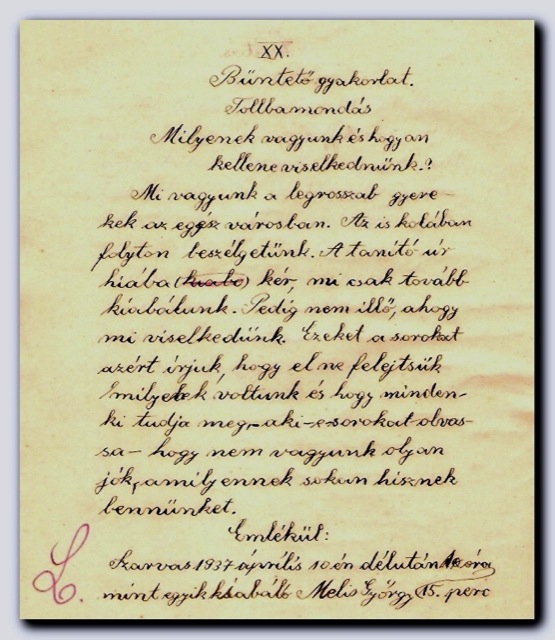 XX.
Büntető gyakorlat.
Tollbamondás
Milyenek vagyunk és hogyan
kellene viselkednünk.?
Mi vagyunk a legrosszab gyere-
kek az egész városban. Az is kolában
folyton beszélgetünk. A tanító úr
hiába (kiabo) kér, mi csak tovább
kiabálunk. Pedig nem illő, ahogy
mi viselkedünk. Ezeket a sorokat
azért írjuk, hogy el ne felejtsük
milyenek voltunk és hogy minden-
ki tudja meg,- aki-e-sorokat-olvas-
sa- hogy nem vagyunk olyan
jók, amilyennek sokan hisznek
bennünket.
Emlékül:
Szarvas 1937 április 10.én délután óra
mint egyik kiabáló Melis György 15. perc
L.